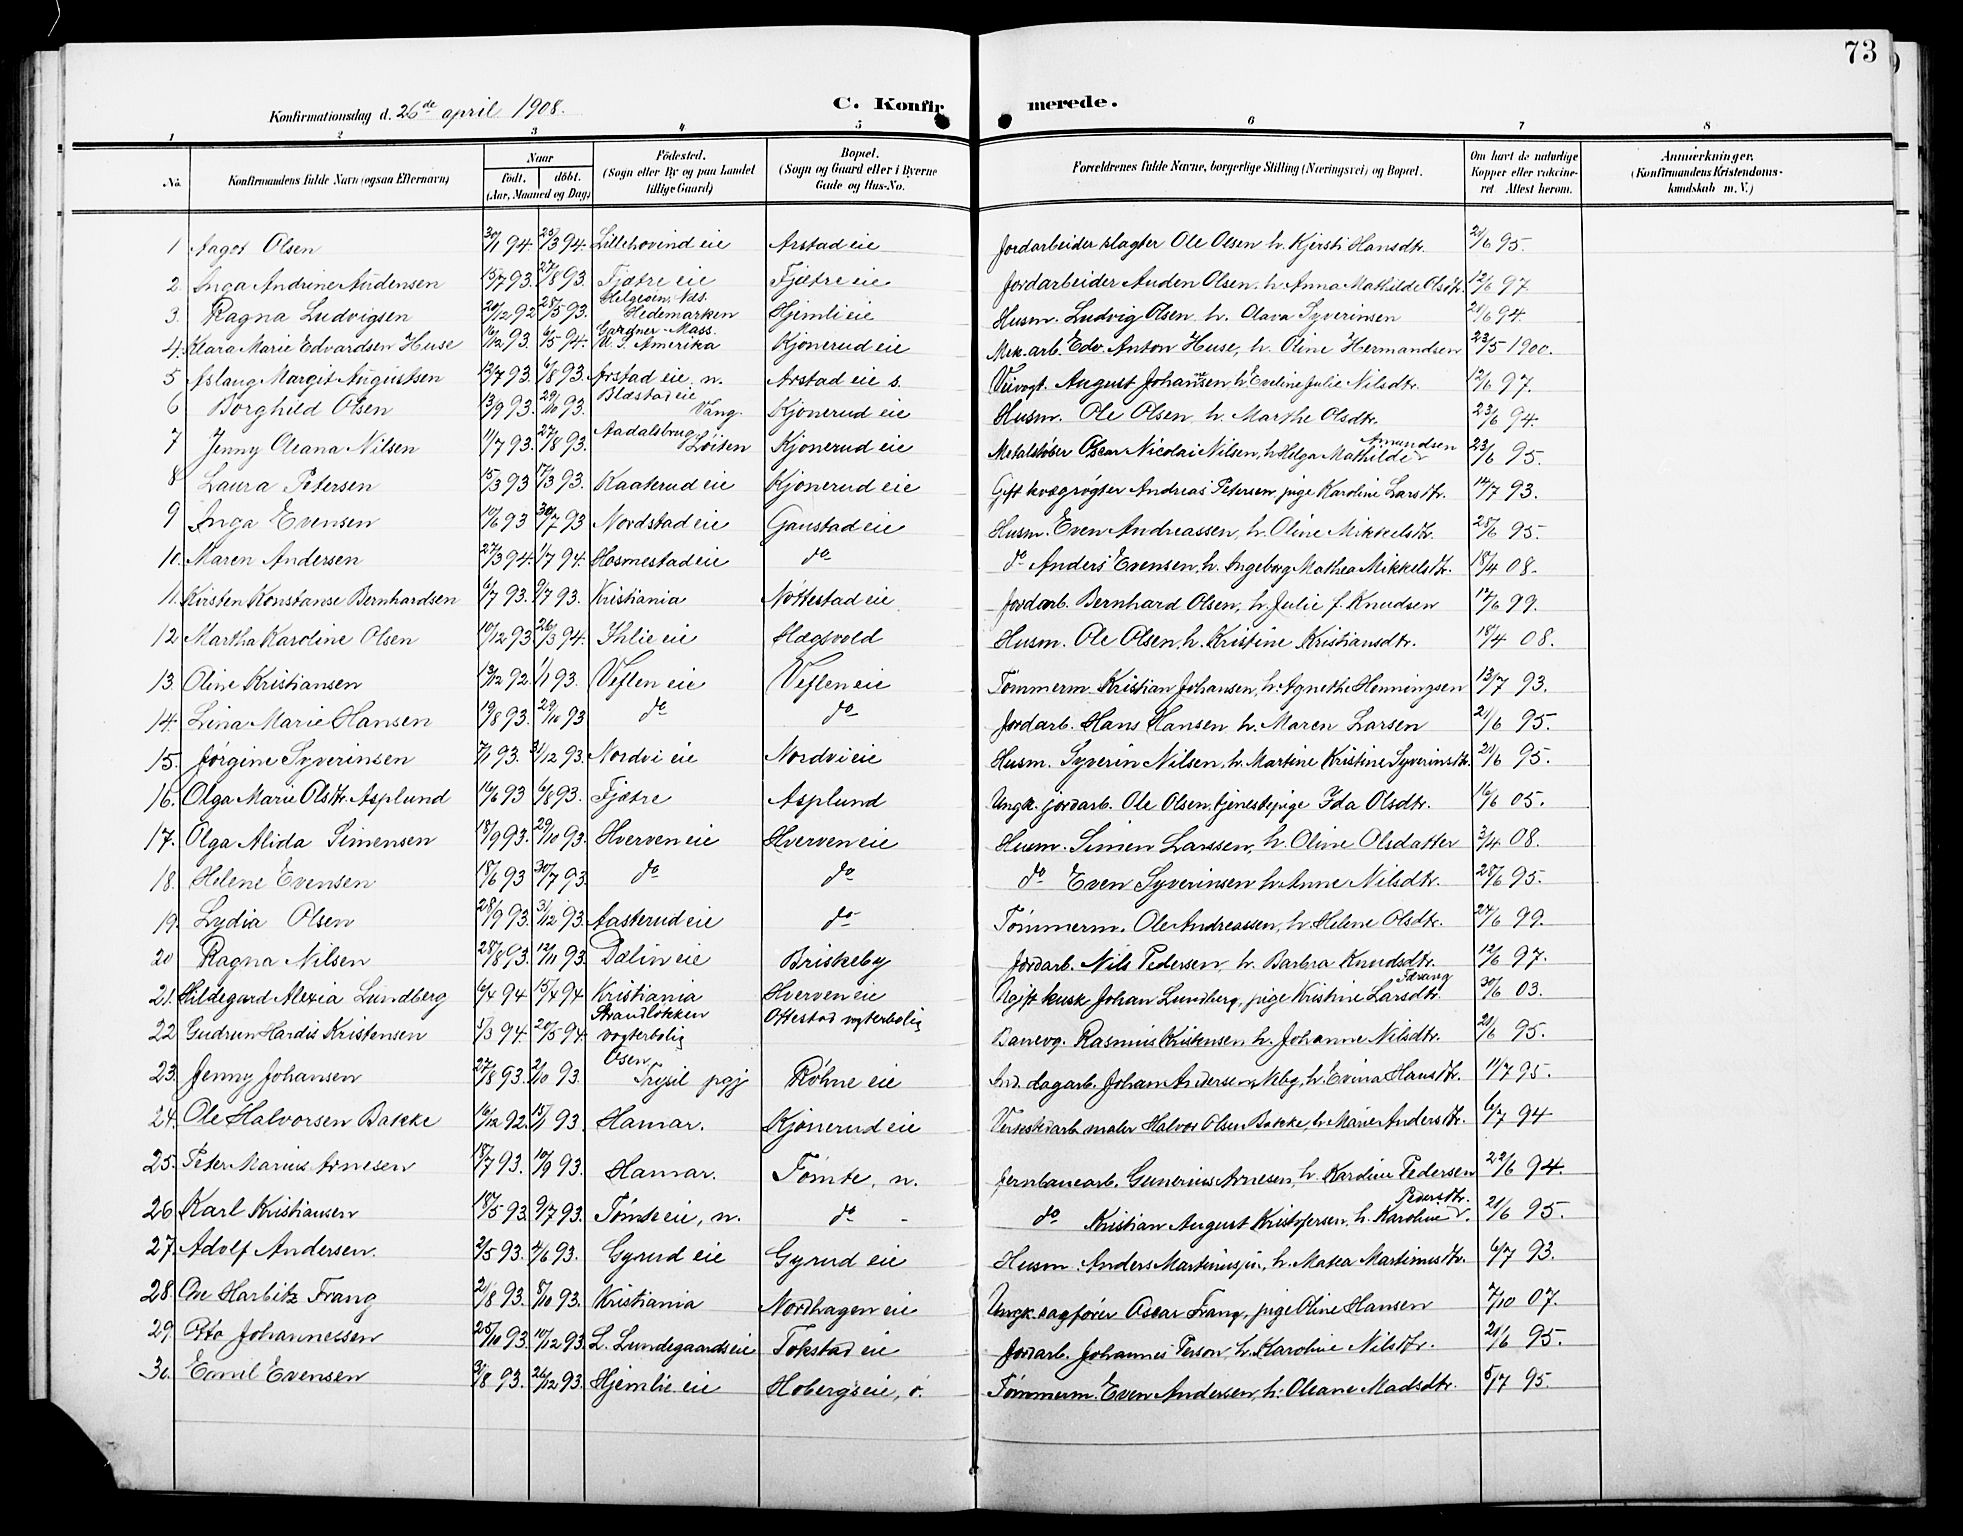 73
Konfirmationsdag d. 26de april 1908.
C. Konfirmerede.
1 2 3 4 5 6 7 8
No. | Konfirmandens fulde Navn (ogsaa Efternavn) | Naar født. døbt. (Aar, Maaned og Dag) | Fødested. (Sogn eller By og paa Landet tillige Gaard) | Bopæl. (Sogn og Gaard eller i Byerne Gade og Hus-No. | Forældrenes fulde Navne, borgerlige Stilling (Næringsvei) og Bopæl. | Om havt de naturlige Kopper eller vakcineret Attest herom. | Anmerkninger. (Konfirmandens Kristendomskundskab m. V.)
1 Aagot Olsen 30/1 94. 23/3 94. Lillehovind eie Arstad eie Jordarbeider slagter Ole Olsen h. Kjersti Hansdtr. 21/6 95.
2 Inga Andrine Audensen 15/7 93. 27/8 93. Fjætre eie Fjætre eie Jordarbeider Auden Olsen, h. Anna Mathilde Olsdtr. 12/6 97.
3. Ragna Ludvigsen 20/12 92 28/5 93. Helgøen, Nes. Hedemarken Hjemli eie Husm. Ludvig Olsen h. Olava Syverinsen 21/6 94.
4. Klara Marie Edvardsen Huse 16/12 93. 6/5 94. Gardner Mass. U. S. Amerika Kjønerud eie Mek. arb. Edv. Anton Huse, h. Oline Hermandsen 23/5 1900.
5 Aslaug Margit Augustsen 13/7 93. 6/8 93. Arstad eie, n. Arstad eie s. Veivogt. August Johansen h. Eveline Julie Nilsdtr. 12/6 97.
6 Borghild Olsen 13/9 93. 29/10 93. Blæstad eie Vang. Kjønerud eie Husm. Ole Olsen h. Marthe Olsdtr. 23/6 94.
7 Jenny Oleana Nilsen 11/7 93. 27/8 93. Aadalsbrug Løiten Kjønerud eie Metalstøber Oscar Nicolai Nilsen, h. Helga Mathilde Amundsen 23/6 95.
8 Laura Petersen 15/3 93 17/3 93. Kaaterud eie Kjønerud eie Gift kvægrøgter Andreas Petersen, pige Karoline Larsdtr. 14/7 93.
9 Inga Evensen 10/6 93 30/7 93 Nordstad eie Ganstad eie Husm. Even Andreassen, h. Oline Mikkelsdtr. 28/6 95.
10. Maren Andersen 27/3 94. 1/7 94. Hosmestad eie do do Anders Evensen, h. Ingeborg Mathea Mikkelsdtr. 18/4 08.
11. Kirsten Konstanse Bernhardsen 6/7 93. 9/7 93. Kristiania Nøttestad eie Jordarb. Bernhard Olsen, h. Julie f. Knudsen 17/6 99.
12 Martha Karoline Olsen 10/12 93 26/3 94. Ihlie eie Hægsvold Husm. Ole Olsen, h. Kristine Kristiansdtr. 18/4 08.
13. Oline Kristiansen 13/12 92. 1/1 93. Veflen eie Veflen eie Tømmerm. Kristian Johansen, h. Agnethe Henningsen 13/7 93.
14. Lina Marie Hansen 19/8 93. 29/10 93 do do Jordarb. Hans Hansen h. Maren Larsen 21/6 95.
15. Jørgine Syverinsen 7/11 93. 31/12 93. Nordvi eie Nordvi eie Husm. Syverin Nilsen, h. Martine Kristine Syverinsdtr. 21/6 95.
16. Olga Marie Olsdtr. Asplund 16/6 93 6/8 93. Fjætre Asplund Ungk. jordarb. Ole Olsen, tjenestepige Ida Olsdtr. 16/6 05.
17. Olga Alida Simensen 18/9 93. 29/10 93. Hverven eie Hverven eie Husm. Simen Larssen, h. Oline Olsdatter 3/4 08.
18. Helene Evensen 18/6 93 30/7 93. do do do Even Syverinsen h. Anne Nilsdtr. 28/6 95.
19. Lydia Olsen 28/9 93. 31/12 93. Aasterud eie do Tømmerm. Ole Andreassen, h. Helene Olsdtr. 24/6 99.
20 Ragna Nilsen 28/8 93. 12/11 93. Dælin eie Briskeby Jordarb. Nils Pedersen, h. Barbra Knudsdtr. 12/6 97.
21. Hildegard Alexia Lundberg 6/4 94 15/4 94 Kristiania Hverven eie Ugift kusk Johan Lundberg, pige Kristine Larsdtr. 30/6 03.
22 Gudrun Hardis Kristensen 1/3 94. 20/5 94. Strandløkken vogterbolig Ottestad vogterbolig Banevog. Rasmus Kristensen, h. Johanne Nilsdtr. 21/6 95.
23. Jenny Johansen 27/8 93. 2/10 93. Osen Trysil pgj Røhne eie Ind. dagarb. Johan Andersen Neby, h. Evina Hansdtr. 11/7 95.
24. Ole Halvorsen Bakke 16/12 92. 15/1 93. Hamar. Kjønerud eie maler Halvor Olsen Bakke, h. Marie Andersdtr. 6/7 94
25. Peter Marius Arnesen 18/7 93. 10/9 93. Hamar. Tømte, n. Jernbanearb. Gunerius Arnesen, h. Karoline Pedersen 22/6 94.
26 Karl Kristiansen 18/5 93. 9/7 93. Tømte eie, n. do do Kristian August Kristofersen, h. Karoline Pedersdtr. 21/6 95.
27. Adolf Andersen. 2/5 93. 4/6 93. Gyrud eie Gyrud eie Husm. Anders Martiniusen, h. Matea Martinusdtr. 6/7 93.
28. Ove Harbitz Frang 21/8 93. 8/10 93. Kristiania Nordhagen eie Ungk. sagfører Oscar Frang, pige Oline Hansen 7/10 07.
29. Otto Johannessen 25/10 93. 10/12 93. L. Lundegaards eie Tokstad eie Jordarb. Johannes Person, h. Karoline Nilsdtr. 21/6 95.
30. Emil Evensen 31/8 93. 26/12 93. Hjemlie eie Hobergs eie, ø. Tømmerm. Even Andersen, h. Oleane Madsdtr. 5/7 95.